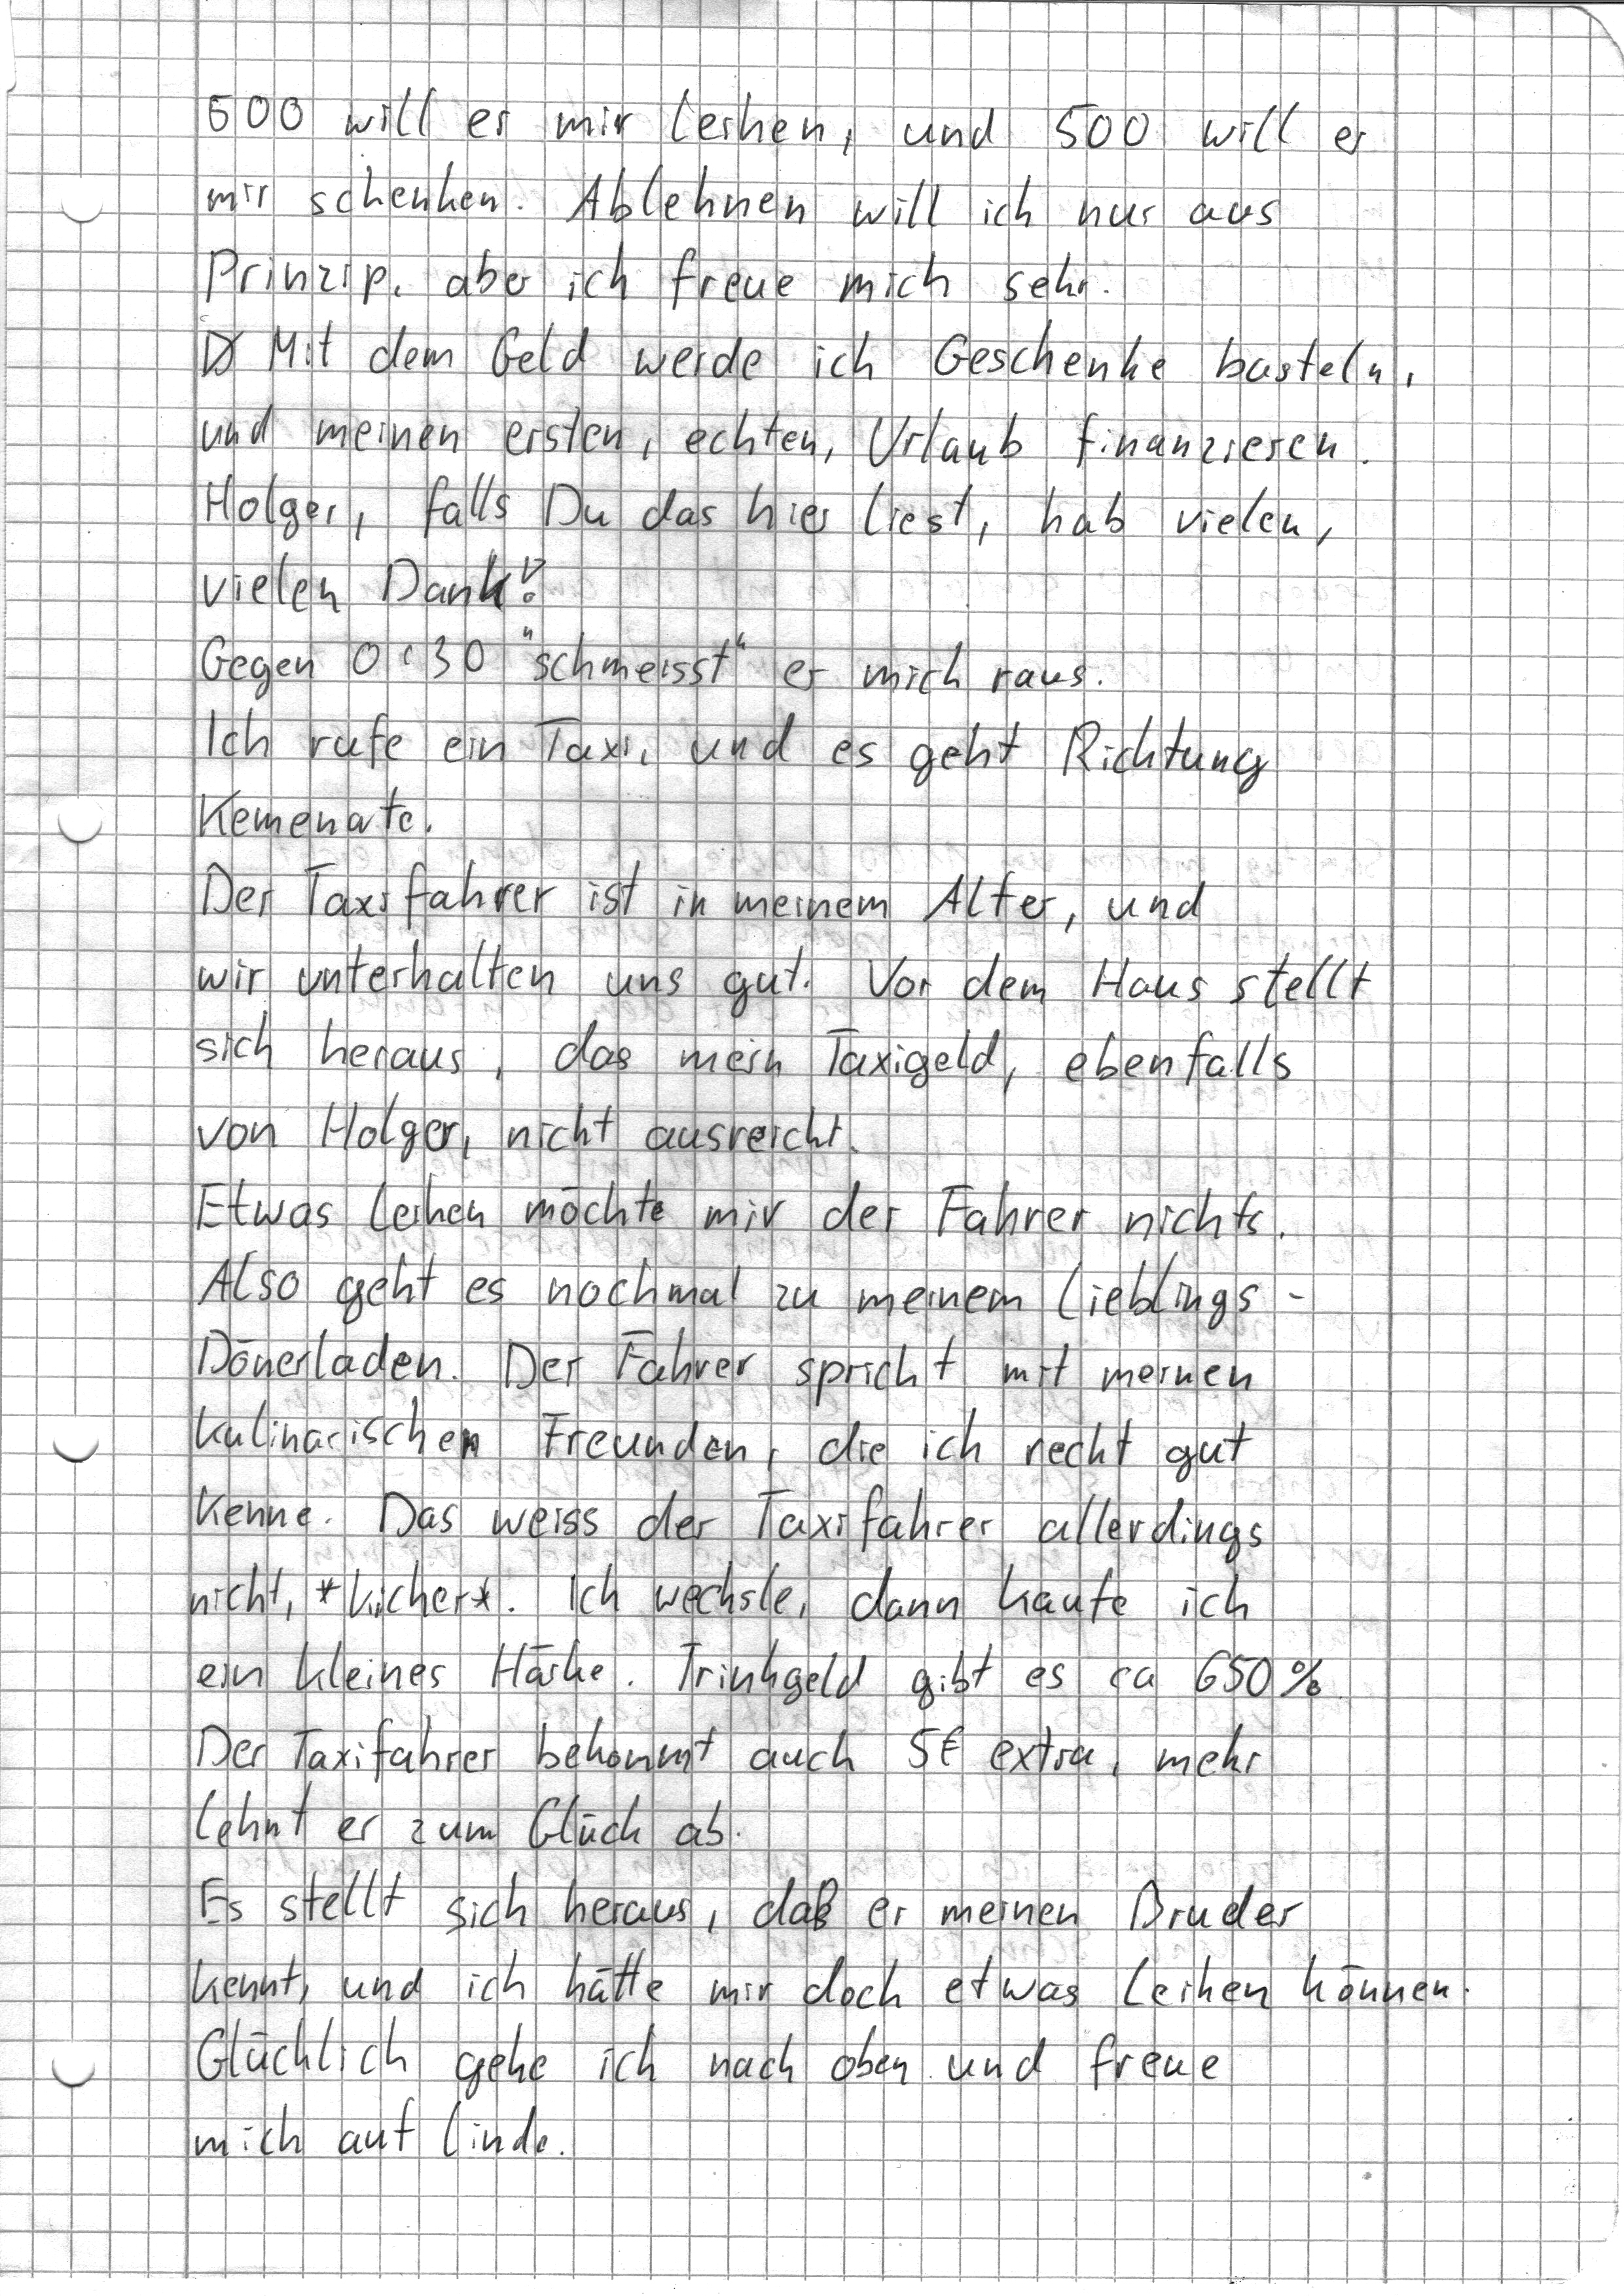 500 will er mir leihen, und 500 will er
mir schenken. Ablehnen will ich nur aus
Prinzip, aber ich freue mich sehr.
Mit dem Geld werde ich Geschenke basteln,
und meinen ersten, echten, Urlaub finanzieren.
Holger, falls Du das hier liest, hab vielen,
vielen Dank!
Gegen 0:30 "schmeisst" er mich raus.
Ich rufe ein Taxi, und es geht Richtung
Kemenate.
Der Taxifahrer ist in meinem Alter, und
wir unterhalten uns gut. Vor dem Haus stellt
sich heraus, das mein Taxigeld, ebenfalls
von Holger, nicht ausreicht.
Etwas leihen möchte mir der Fahrer nichts.
Also geht es nochmal zu meinem Lieblings-
Dönerladen. Der Fahrer spricht mit meinen
kulinarischen Freunden, die ich recht gut
kenne. Das weiss der Taxifahrer allerdings
nicht, *kicher*. Ich wechsle, dann kaufe ich
ein kleines Häske. Trinkgeld gibt es ca 650%
Der Taxifahrer bekommt auch 5€ extra, mehr
lehnt er zum Glück ab.
Es stellt sich heraus, daß er meinen Bruder
kennt, und ich hätte mir doch etwas leihen können.
Glücklich gehe ich nach oben und freue
mich auf Linde.